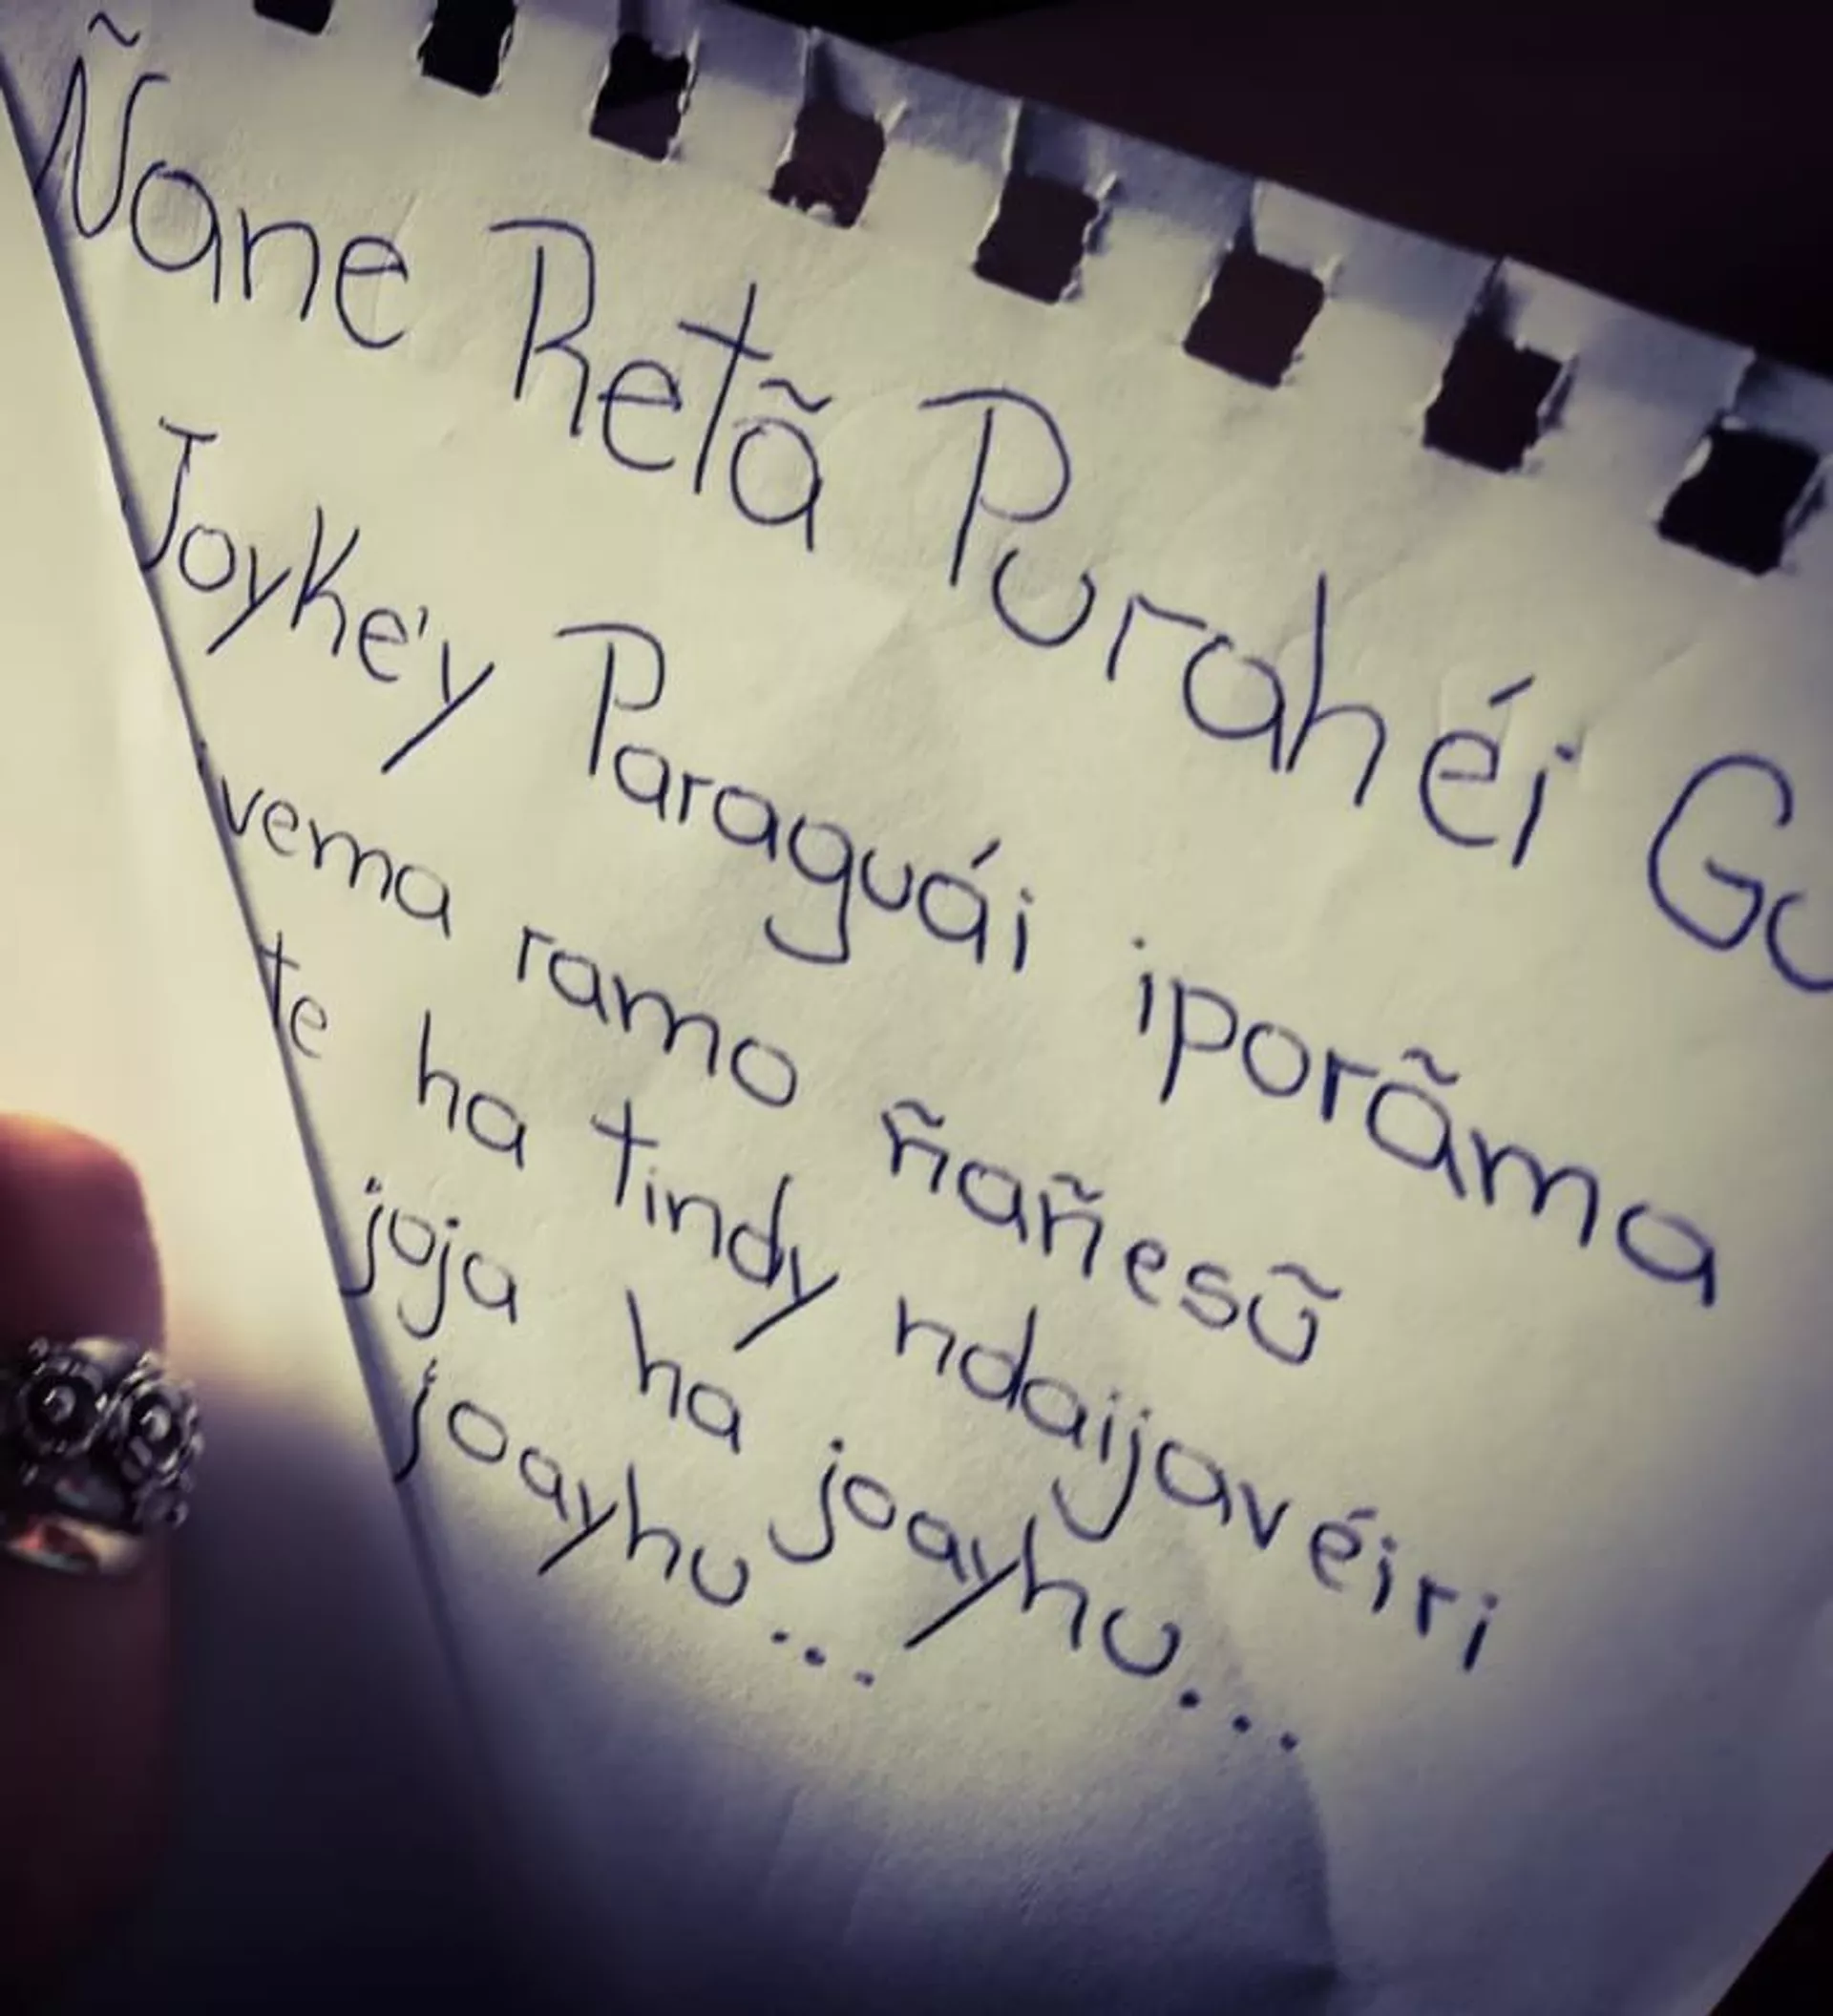 Ñane Retã Purahéi Gu
Joyke'y Paraguái iporãma
vema ramo ñañesũ
te ha tindy ndaijavéiri
joja ha joayhu...
joayhu...